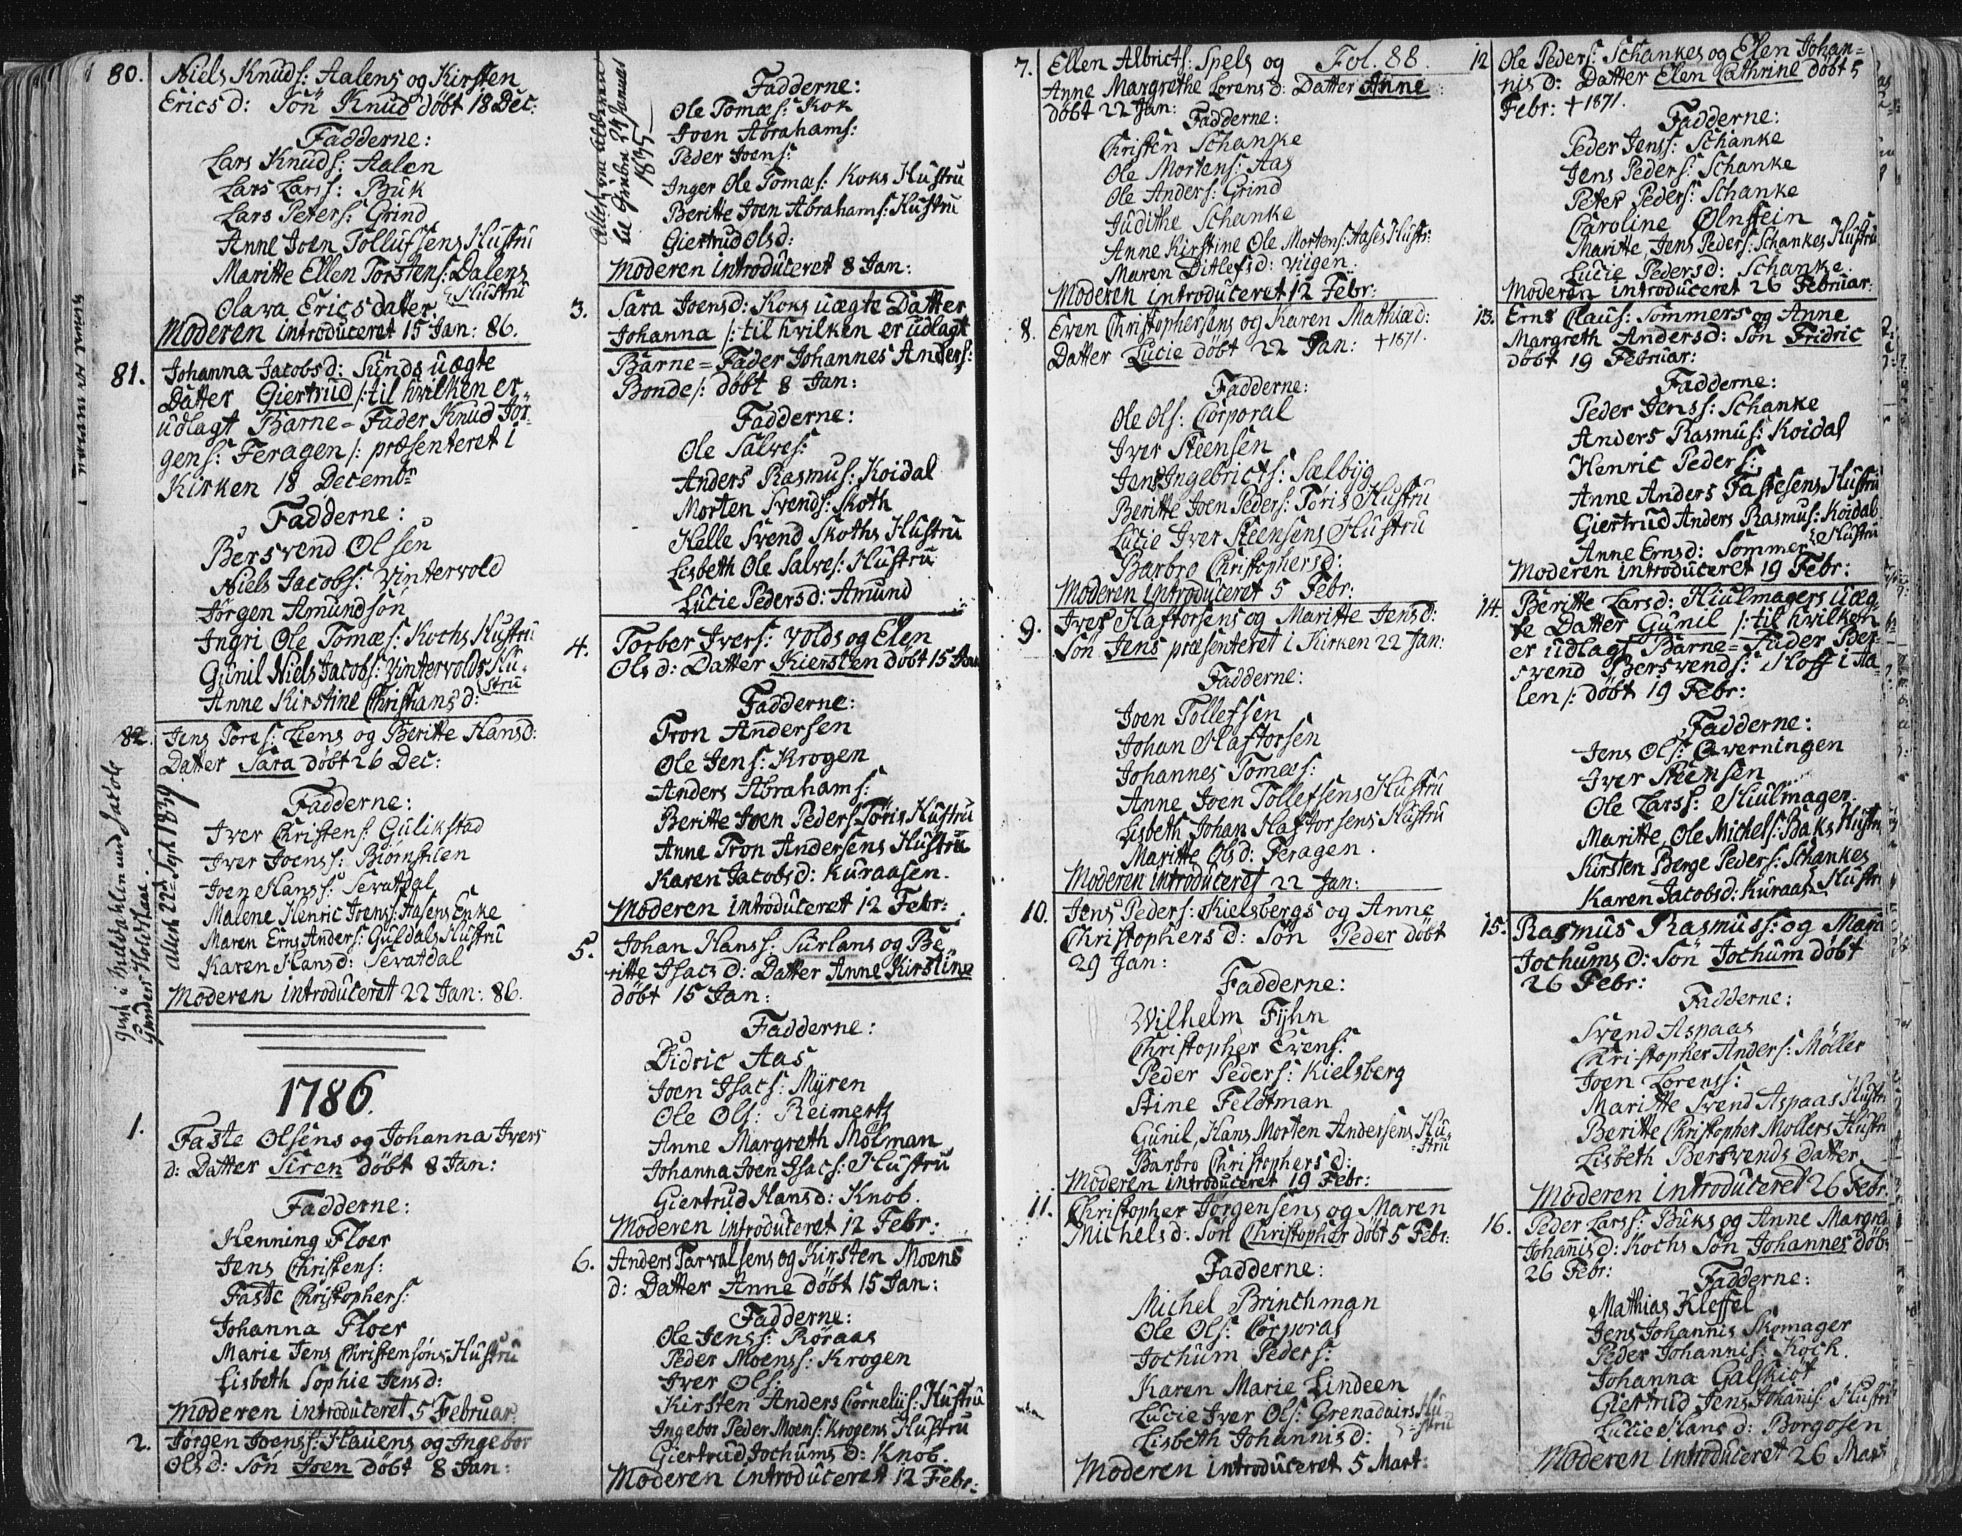 80. Niels Knuds: Aalens og Kirsten
Ericsd: Søn Knud døbt 18 Dec:
Fadderne:
Lars Knuds: Aalen
Lars Larss: Buk
Lars Peters: Grind
Anne Joen Tollufsens Hustru
Maritte Ellen Torstens: Dalens
Hustru
Olava Ericsdater.
Moderen introduceret 15 Jan: 86.
81. Johanna Jacobsd: Sunds uægte
Datter Giertrud /: til hvilken er
udlagt Barne-Fader Knud Jør-
gens: Feragen :/ præsenteret i
Kirken 18 Decembr
Fadderne:
Bersvend Olsen
Niels Jacobs: Vintervold
Jørgen Amundsøn
Ingri Ole Tomæs: Kochs Hustru
Gunil Niels Jacobs: Vintervolds Hu-
stru
Anne Kirstine Christiansd:
82. Jens Tores: Liens og Beritte Hansd:
Datter Sara døbt 26 Dec:
Fadderne:
Iver Christens: Gulikstad
Iver Joenss: Biørnstien
Joen Hanss: Sevatdal
Malene Henric Joens: Aasens Enke
Maren Erns Anders: Guldals Hustru
Karen Hansd: Sevatdal
Moderen introduceret 22 Jan: 86.
1786.
1. Faste Olsens og Johanna Ivers
d: Datter Siren døbt 8 Jan:
Fadderne:
Henning Floer
Jens Christens:
Faste Christophers:
Johanna Floer
Marie Jens Christensøns Hustru
Lisbeth Sophie Jensd:
Moderen introduceret 5 Februar:
2. Jørgen Joenss: Hauens og Ingebor
Olsd: Søn Joen døbt 8 Jan:
Fadderne:
Ole Tomæs: Kok
Joen Abrahams:
Peder Joens:
Inger Ole Tomæs: Koks Hustru
Beritte Joen Abrahams: Hustru
Giertrud Olsd:
Moderen introduceret 8 Jan:
3. Sara Joensd: Koks uægte Datter
Johanna /: til hvilken er udlagt
Barne-Fader Johannes Anders:
Bonde :/ døbt 8 Jan:
Fadderne:
Ole Salves:
Anders Rasmus: Koidal
Morten Svends: Skoth
Helle Svend Skoths Hustru
Lisbeth Ole Salves: Hustru
Lucie Pedersd: Amund
4. Torber Ivers: Volds og Elen
Olsd: Datter Kiersten døbt 15 Jan
Fadderne:
Tron Andersen
Ole Jens: Krogen
Anders Abrahams:
Beritte Joen Peders: Tøris Hustru
Anne Tron Andersens Hustru
Karen Jacobsd: Kuraasen.
Moderen introduceret 12 Febr:
5. Johan Hanss: Surlans og Be-
ritte Isacsd: Datter Anne Kirstine
døbt 15 Jan:
Fadderne:
Didric Aas
Joen Isacs: Myren
Ole Ols: Reimertz
Anne Margreth Mølman
Johanna Joen Isacs: Hustru
Giertrud Hansd: Knob.
Moderen introduceret 12 Febr:
6. Anders Tarvalsens og Kirsten Moens
d: Datter Anne døbt 15 Jan:
Fadderne:
Ole Jenss: Røraas
Peder Moenss: Krogen
Iver Ols:
Kirsten Anders Cornelijs: Hustru
Ingebor Peder Moens: Krogens Hustru
Giertrud Jochumsd: Knob
Moderen introduceret 12 Febr:
Fol. 88.
7. Ellen Albricts: Spels og
Anne Margrethe Lorensd: Datter Anne
døbt 22 Jan:
Fadderne:
Christen Schanke
Ole Mortens: Aas
Ole Anders: Grind
Judithe Schanke
Anne Kirstine Ole Mortens: Aases Hustr:
Maren Ditlefsd: Viigen.
Moderen introduceret 12 Febr:
8. Even Christophersens og Karen Mathiæd:
Datter Lucie døbt 22 Jan: †1871.
Fadderne:
Ole Ols: Corporal
Iver Steensen
Jens Ingebricts: Sælbyg
Beritte Joen Peders: Tøris Hustru
Lucie Iver Steensens Hustru
Barbro Christophersd:
Moderen introduceret 5 Febr:
9. Iver Haftorsens og Maritte Jensd:
Søn Jens præsenteret i Kirken 22 Jan:
Fadderne:
Joen Tollefsen
Johan Haftorsen
Johannes Tomæs:
Anne Joen Tollefsens Hustru
Lisbeth Johan Haftorsens Hustru
Maritte Olsd: Feragen.
Moderen introduceret 22 Jan:
10. Jens Peders: Kielsbergs og Anne
Christophersd: Søn Peder døbt
29 Jan:
Fadderne:
Wilhelm Fyhn
Christopher Evens:
Peder Peders: Kielsberg
Stine Feldtman
Gunil, Hans Morten Andersens Hu-
stru
Barbro Christophersd:
Moderen introduceret 19 Febr:
11. Christopher Jørgensens og Maren
Michelsd: Søn Christopher døbt 5 Febr:
Fadderne:
Michel Brinchman
Ole Ols: Corporal
Jochum Peders:
Karen Marie Lindeen
Lucie Iver Ols: Grenaduers Hu
stru
Lisbeth Johannisd:
Moderen introduceret 5 Mart:
12 Ole Peders: Schankes og Elen Johan-
nisd: Datter Elen Cathrine døbt 5
Febr: †1871.
Fadderne:
Peder Jenss: Schanke
Jens Peders: Schanke
Peter Peders: Schanke
Caroline Olnstein
Maritte, Jens Peders: Schankes Hustru
Lucie Pedersd: Schanke.
Moderen introduceret 26 Februar:
13. Erns Claus: Sommers og Anne
Margreth Andersd: Søn Fridric
døbt 19 Februar:
Fadderne:
Peder Jenss: Schanke
Anders Rasmus: Koidal
Henric Peders:
Anne Anders Fastesens Hustru
Giertrud Anders Rasmus: Koidals
Hustru
Anne Ernsd: Sommer
Moderen introduceret 19 Febr:
14. Beritte Larsd: Hiulmagers uæg-
te Datter Gunil /: til hvilken
er udlagt Barne-Fader Ber-
svend Bersvends: Hoff i Aa-
len :/ døbt 19 Febr:
Fadderne:
Jens Ols: Qverningen
Iver Steensen
Ole Larss: Hiulmager.
Maritte, Ole Michels: Baks Hustru
Kirsten Berge Peders: Schankes
Hustru
Karen Jacobsd: Kuraas
15. Rasmus Rasmuss: og Mari
Jochumsd: Søn Jochum døbt
26 Febr:
Fadderne:
Svend Aspaas
Christopher Anders: Møller
Joen Lorenss:
Maritte Svend Aspaas Hustr
Beritte Christopher Møllers Hustr
Lisbeth Bersvends Datter
Moderen introduceret 26 Febr.
16. Peder Larss: Buks og Anne Margre
Johannisd: Kochs Søn Johannes døbt
26 Febr:
Fadderne:
Mathias Kleffel
Jens Johannis Skomager
Peder Johannis: Kock.
Johanna Galskiøt
Giertrud Jens Johannis: Hustru
Lucie Hansd: Borgosen
Moderen introduceret 26 Mars